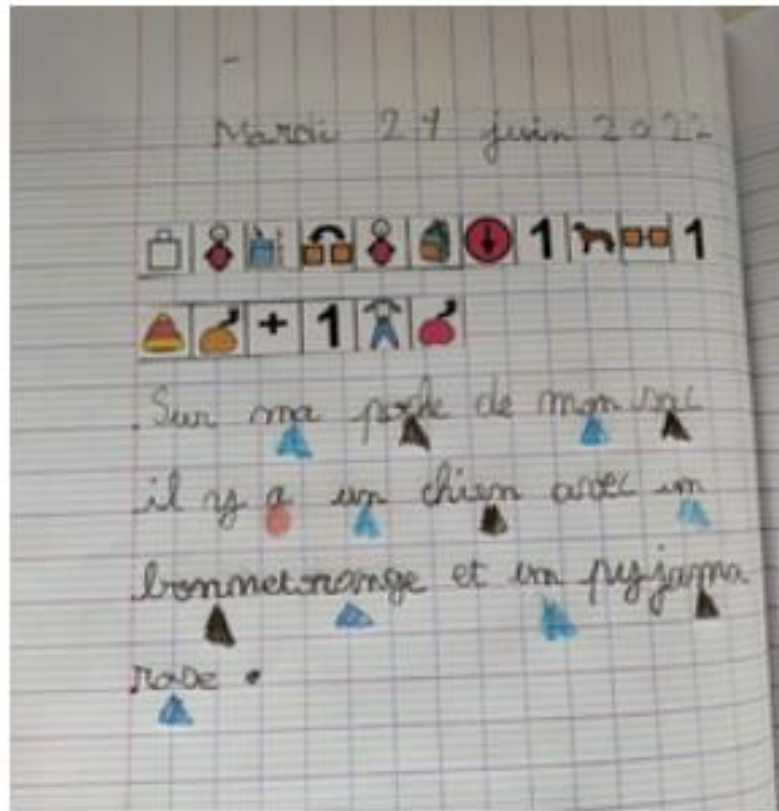 Mardi 21 juin 2022
1 1
+ 1
Sur ma poche de mon sac
il y a un chien avec un
bonnet orange et un pyjama
rose .